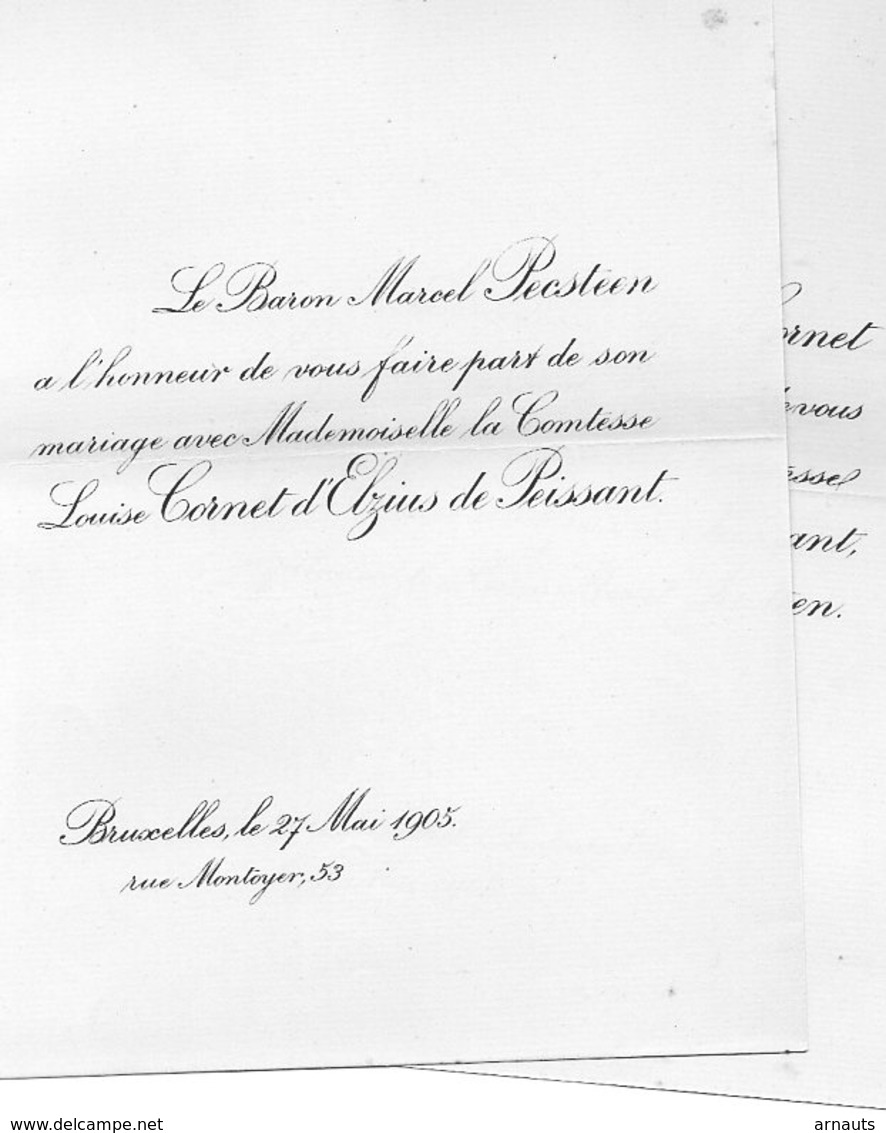 Le Baron Marcel Pecsteen
a l'honneur de vous faire part de son
mariage avec Mademoiselle la Comtesse
Louise Cornet d'Elzius de Peissant.
Bruxelles, le 27 Mai 1905.
rue Montoyer, 53
ornet
vous
esse
ant,
en.
www.delcampe.net
arnauts